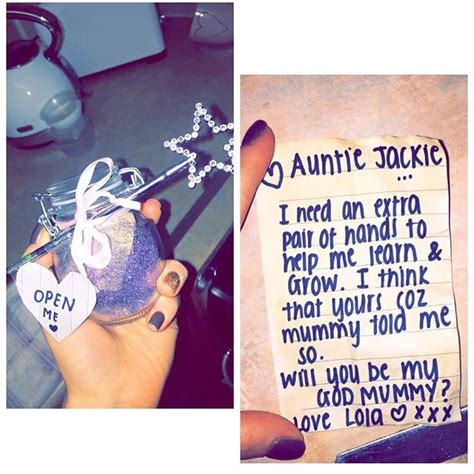 OPEN
ME
♡ Auntie Jackie
...
I need an extra
pair of hands to
help me learn &
Grow. I think
that yours coz
mummy told me
so.
will you be my
GOD MUMMY?
Love Lola ♡ xxx